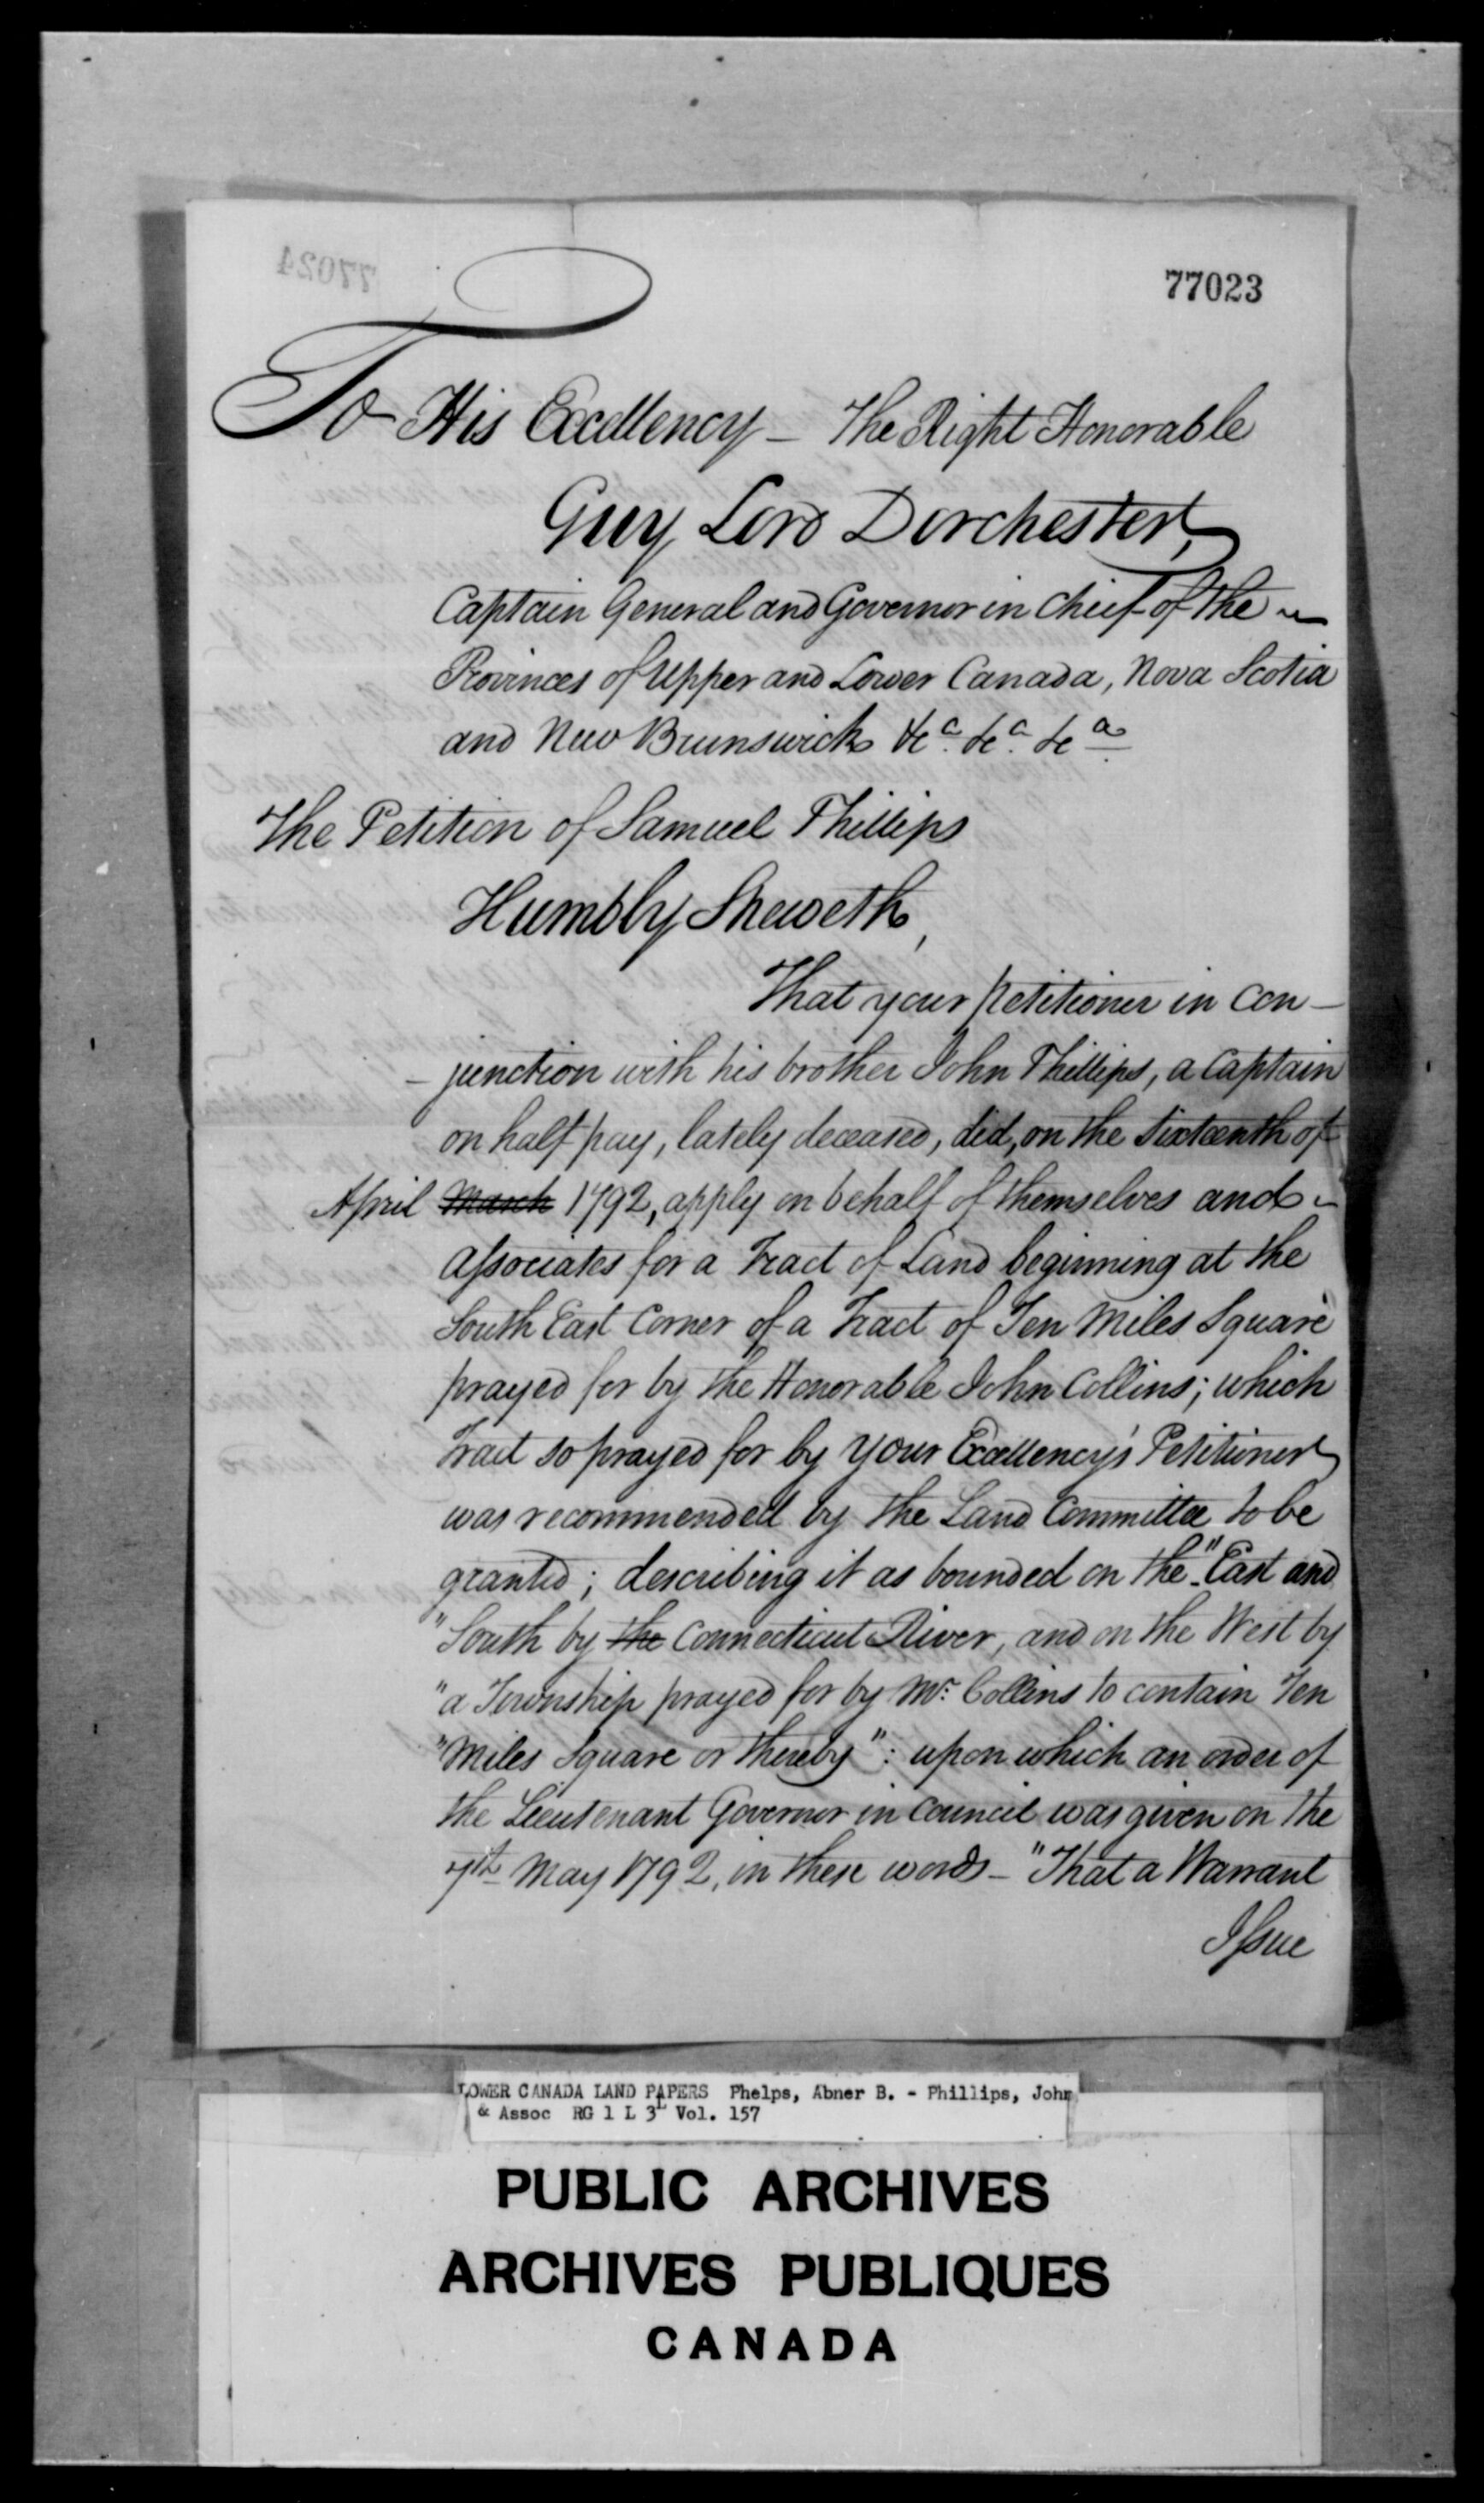 77024
77023
To His Excellency - The Right Honorable
Guy Lord Dorchester,
Captain General and Governor in Chief of the
Provinces of Upper and Lower Canada, Nova Scotia
and New Brunswick &c.a &c.a &c.a
The Petition of Samuel Phillips
Humbly Sheweth,
That your Petitioner in con-
-junction with his brother John Phillips, a Captain
on half pay, lately deceased, did, on the Sixteenth of
April March 1792, apply on behalf of themselves and
Associates for a Tract of Land beginning at the
South East Corner of a Tract of Ten Miles Square
prayed for by the Honorable John Collins; which
Tract so prayed for by Your Excellency's Petitioner
was recommended by the Land Committee to be
granted; describing it as bounded on the "East and
"South by the Connecticut River, and on the West by
"a Township prayed for by Mr. Collins to contain Ten
"Miles Square or thereby": upon which an order of
the Lieutenant Governor in Council was given on the
7th May 1792, in these words - "That a Warrant
Issue
LOWER CANADA LAND PAPERS Phelps, Abner B. - Phillips, John
& Assoc RG 1 L 3L Vol. 157
PUBLIC ARCHIVES
ARCHIVES PUBLIQUES
CANADA